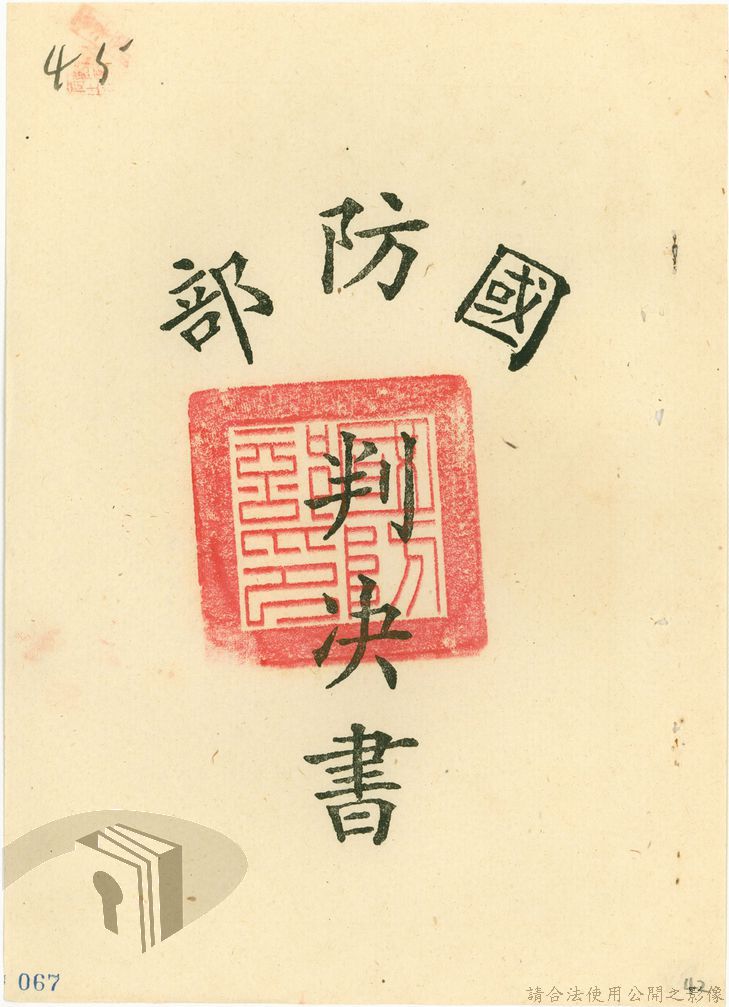 45
國防部
判決書
067
42
請合法使用公開之影像